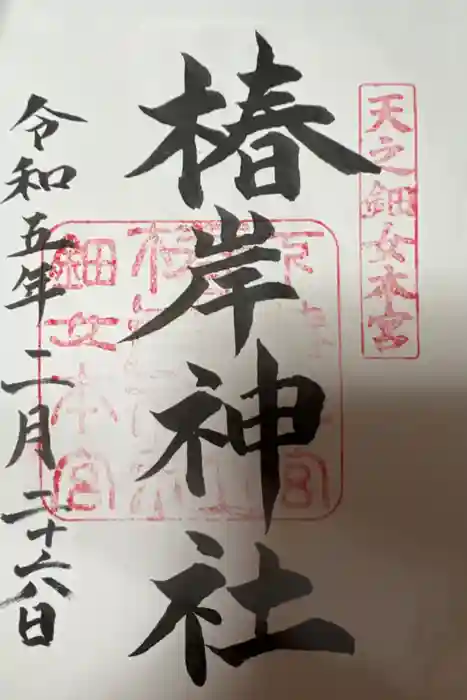 天之鈿女本宮
椿岸神社
鈿女本宮
令和五年二月二十六日